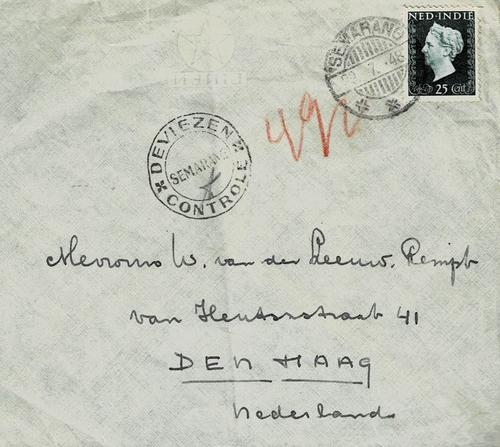 NED·INDIE
SEMARANG
25 Cent
DEVIEZEN
SEMARANG
CONTROLE
Mevrouw W. van der Leeuw. Rempt
van Heutszstraat 41
DEN HAAG
Nederland